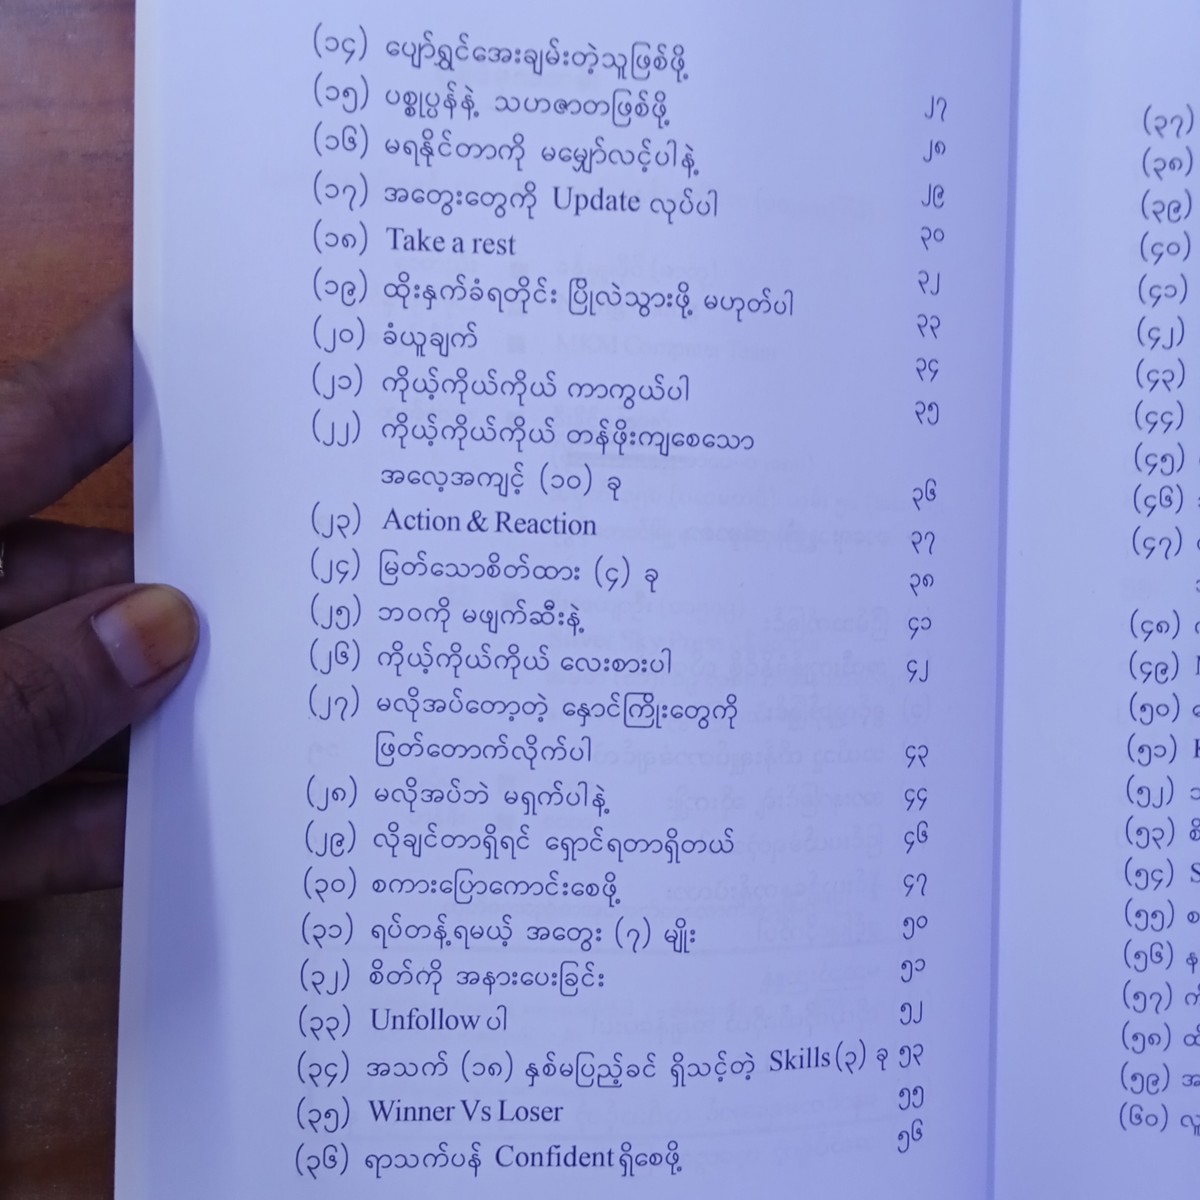 (၁၄) ပျော်ရွှင်အေးချမ်းတဲ့သူဖြစ်ဖို့ ၂၇
(၁၅) ပစ္စုပ္ပန်နဲ့ သဟဇာတဖြစ်ဖို့ ၂၈
(၁၆) မရနိုင်တာကို မမျှော်လင့်ပါနဲ့ ၂၉
(၁၇) အတွေးတွေကို Update လုပ်ပါ ၃၀
(၁၈) Take a rest ၃၂
(၁၉) ထိုးနှက်ခံရတိုင်း ပြိုလဲသွားဖို့ မဟုတ်ပါ ၃၃
(၂၀) ခံယူချက် ၃၄
(၂၁) ကိုယ့်ကိုယ်ကိုယ် ကာကွယ်ပါ ၃၅
(၂၂) ကိုယ့်ကိုယ်ကိုယ် တန်ဖိုးကျစေသော
အလေ့အကျင့် (၁၀) ခု ၃၆
(၂၃) Action & Reaction ၃၇
(၂၄) မြတ်သောစိတ်ထား (၄) ခု ၃၈
(၂၅) ဘဝကို မဖျက်ဆီးနဲ့ ၄၁
(၂၆) ကိုယ့်ကိုယ်ကိုယ် လေးစားပါ ၄၂
(၂၇) မလိုအပ်တော့တဲ့ နှောင်ကြိုးတွေကို
ဖြတ်တောက်လိုက်ပါ ၄၃
(၂၈) မလိုအပ်ဘဲ မရှက်ပါနဲ့ ၄၄
(၂၉) လိုချင်တာရှိရင် ရှောင်ရတာရှိတယ် ၄၆
(၃၀) စကားပြောကောင်းစေဖို့ ၄၇
(၃၁) ရပ်တန့်ရမယ့် အတွေး (၇) မျိုး ၅၀
(၃၂) စိတ်ကို အနားပေးခြင်း ၅၁
(၃၃) Unfollow ပါ ၅၂
(၃၄) အသက် (၁၈) နှစ်မပြည့်ခင် ရှိသင့်တဲ့ Skills (၃) ခု ၅၃
(၃၅) Winner Vs Loser ၅၅
(၃၆) ရာသက်ပန် Confident ရှိစေဖို့ ၅၆
(၃၇)
(၃၈)
(၃၉)
(၄၀)
(၄၁)
(၄၂)
(၄၃)
(၄၄)
(၄၅)
(၄၆)
(၄၇)
(၄၈)
(၄၉)
(၅၀)
(၅၁)
(၅၂)
(၅၃)
(၅၄) S
(၅၅)
(၅၆)
(၅၇)
(၅၈)
(၅၉)
(၆၀)